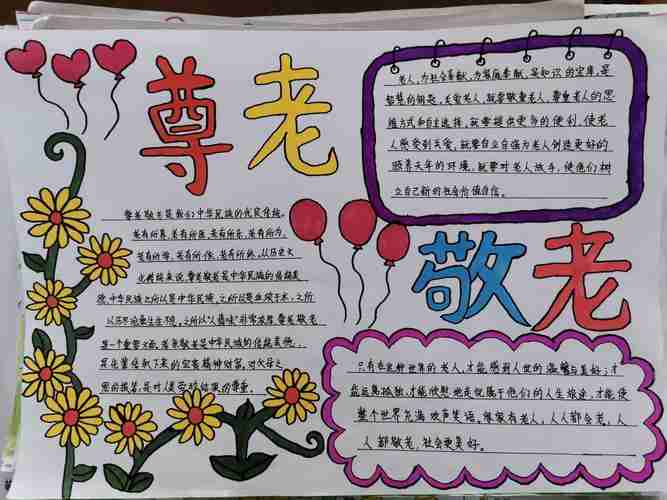 尊老
老人,为社会奉献,为家庭奉献,是知识的宝库,是
智慧的钥匙,关爱老人,就要敬重老人,尊重老人的思
维方式和自主选择,就要提供更多的便利,使老
人感受到关爱,就要自立自强为老人创造更好的
颐养天年的环境,就要对老人放手,使他们树
立自己新的社会价值自信。
尊老敬老是我们中华民族的优良传统。
老有所养,老有所医,老有所乐,老有所为,
老有所学,老有所依,老有所教,从历史文
化传统来说,尊老敬老是中华民族的传统美
德,中华民族之所以是中华民族,之所以是血浓于水,之所
以历尽沧桑生生不息,之所以"人情味"非常浓厚,尊老敬老
是一个重要支点,尊老敬老是中华民族的传统美德,
是先辈传承下来的宝贵精神财富,对父母之
恩的报答,是对人劳动结果的尊重。
敬老
只有在安静世界的老人,才能感到人世的温馨与美好;才
能远离孤独,才能欣慰地走完属于他们的人生旅途,才能使
整个世界充满欢声笑语,谁家有老人,人人都会老,人
人都敬老,社会更美好。